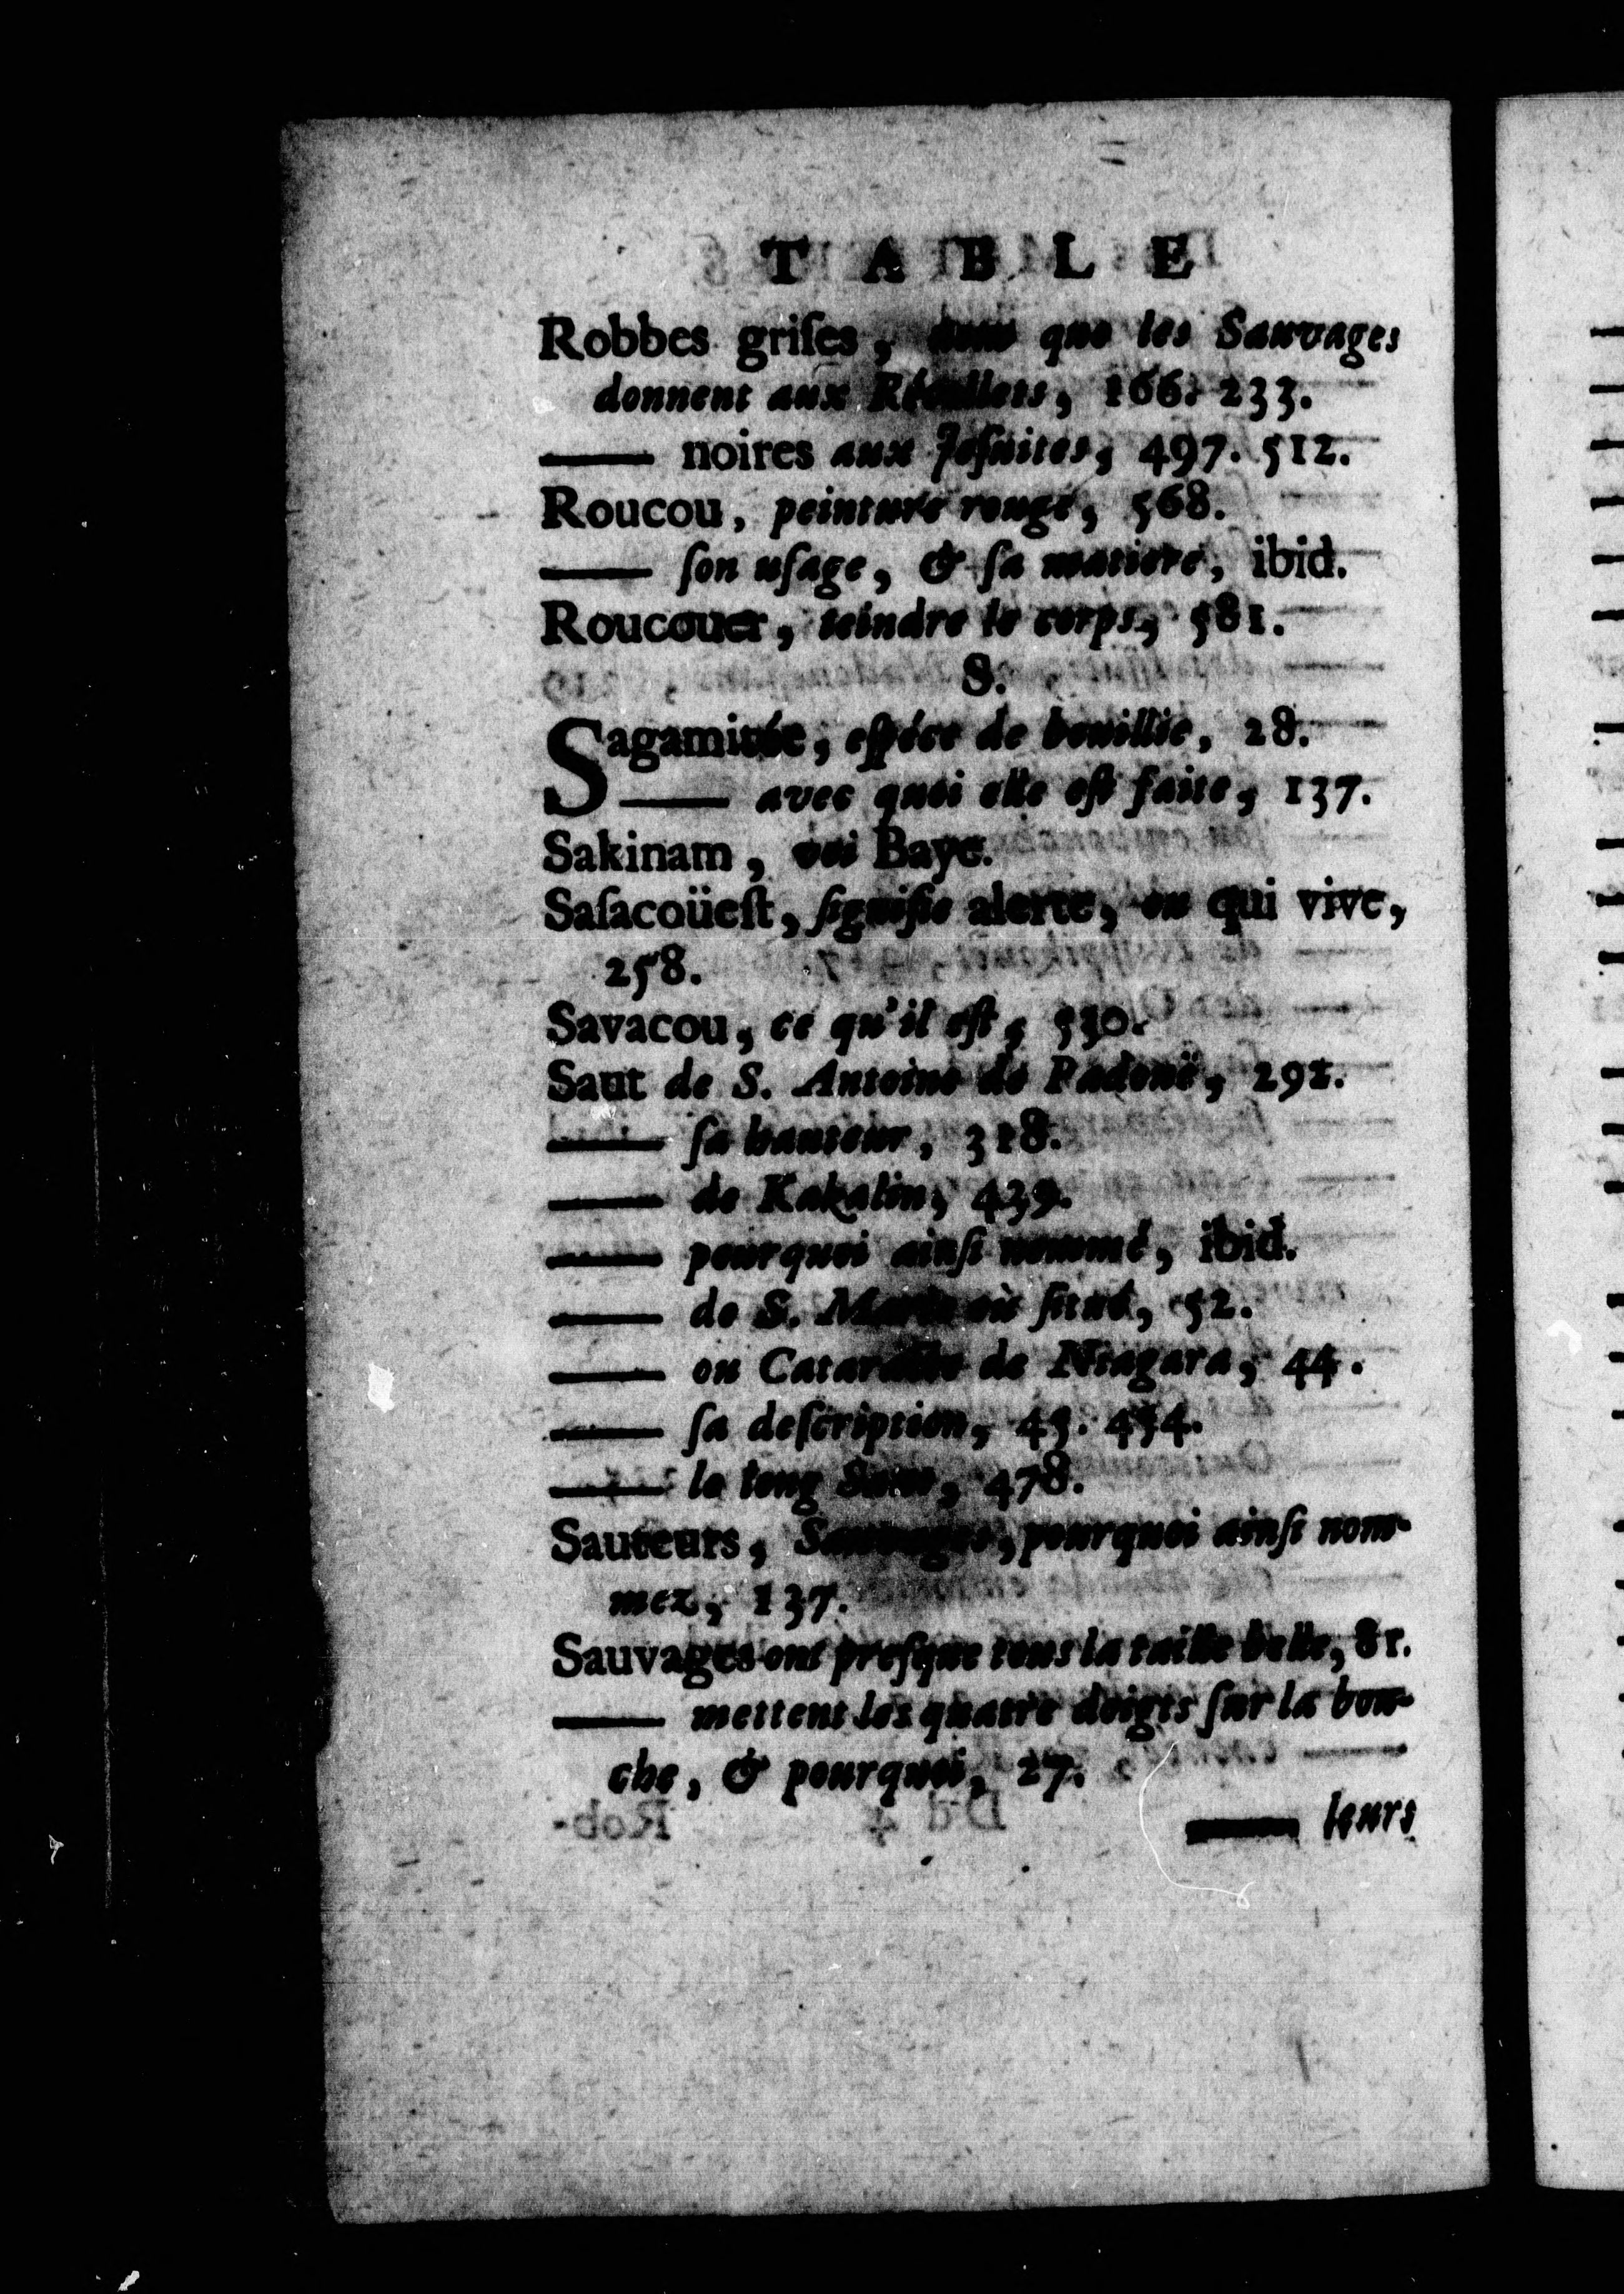 TABLE
Robbes griſes, que les Sauvages
donnent aux Récollets, 166. 233.
—— noires aux Jeſuites, 497. 512.
Roucou, peinture rouge, 568.
—— ſon uſage, & ſa matiere, ibid.
Roucouer, teindre le corps, 581.
S.
Sagamitée, eſpéce de bouillie, 28.
—— avec quoi elle eſt faite, 137.
Sakinam, voi Baye.
Saſacoüeſt, ſignifie alerte, ou qui vive,
258.
Savacou, ce qu'il eſt, 530.
Saut de S. Antoine de Padouë, 292.
—— ſa hauteur, 318.
—— de Kakalin, 439.
—— pourquoi ainſi nommé, ibid.
—— de S. Marie où ſitué, 52.
—— ou Cataracte de Niagara, 44.
—— ſa deſcription, 45. 454.
—— le long Saut, 478.
Sauteurs, Sauvages, pourquoi ainſi nom-
mez, 137.
Sauvages ont preſque tous la taille belle, 81.
—— mettent les quatre doigts ſur la bou-
che, & pourquoi, 27.
—— leurs